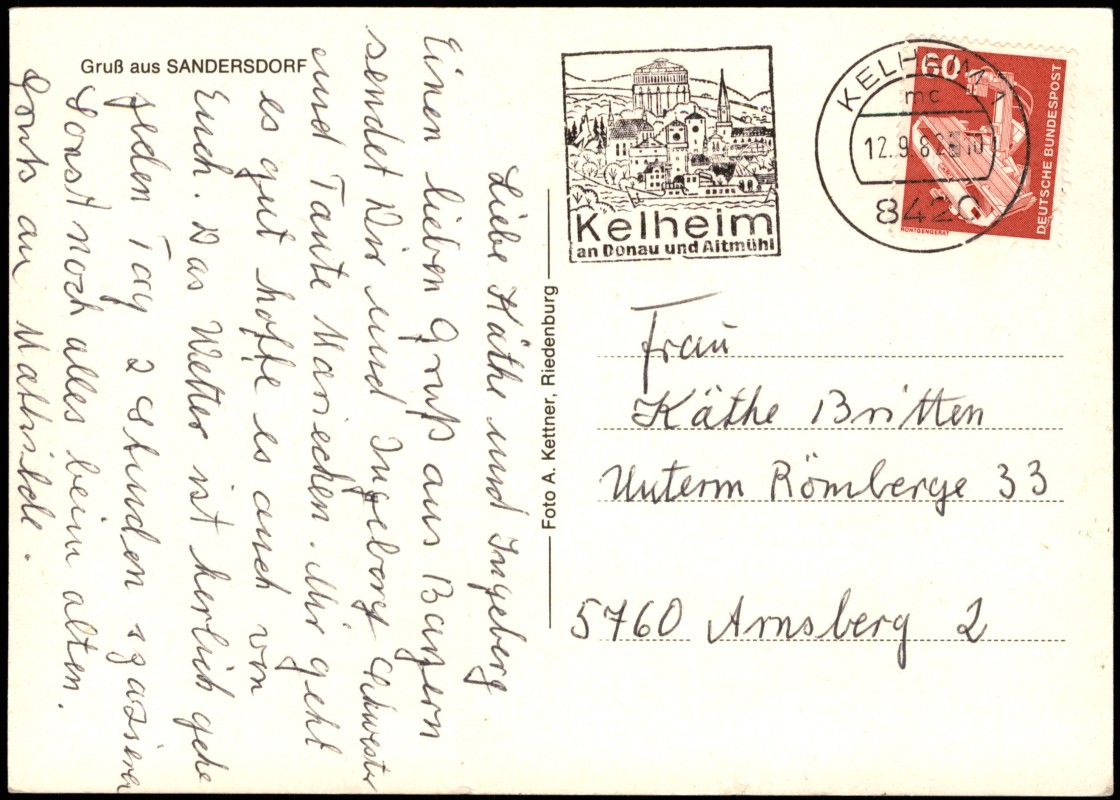 Gruß aus SANDERSDORF
Liebe Käthe und Ingeberg
Einen lieben Gruß aus Bayern
sendet Dir und Ingeberg Schwester
und Tante Mariechen. Mir geht
es gut hoffe es auch von
Euch. Das Wetter ist herlich gehe
jeden Tag 2 Stunden spazieren
Sonst noch alles beim alten.
an Mathilde.
Foto A. Kettner, Riedenburg
Kelheim
an Donau und Altmühl
KELHEIM 1
mc
8420
60
DEUTSCHE BUNDESPOST
RÖNTGENGERÄT
Frau
Käthe Britten
Unterm Römberge 33
5760 Arnsberg 2